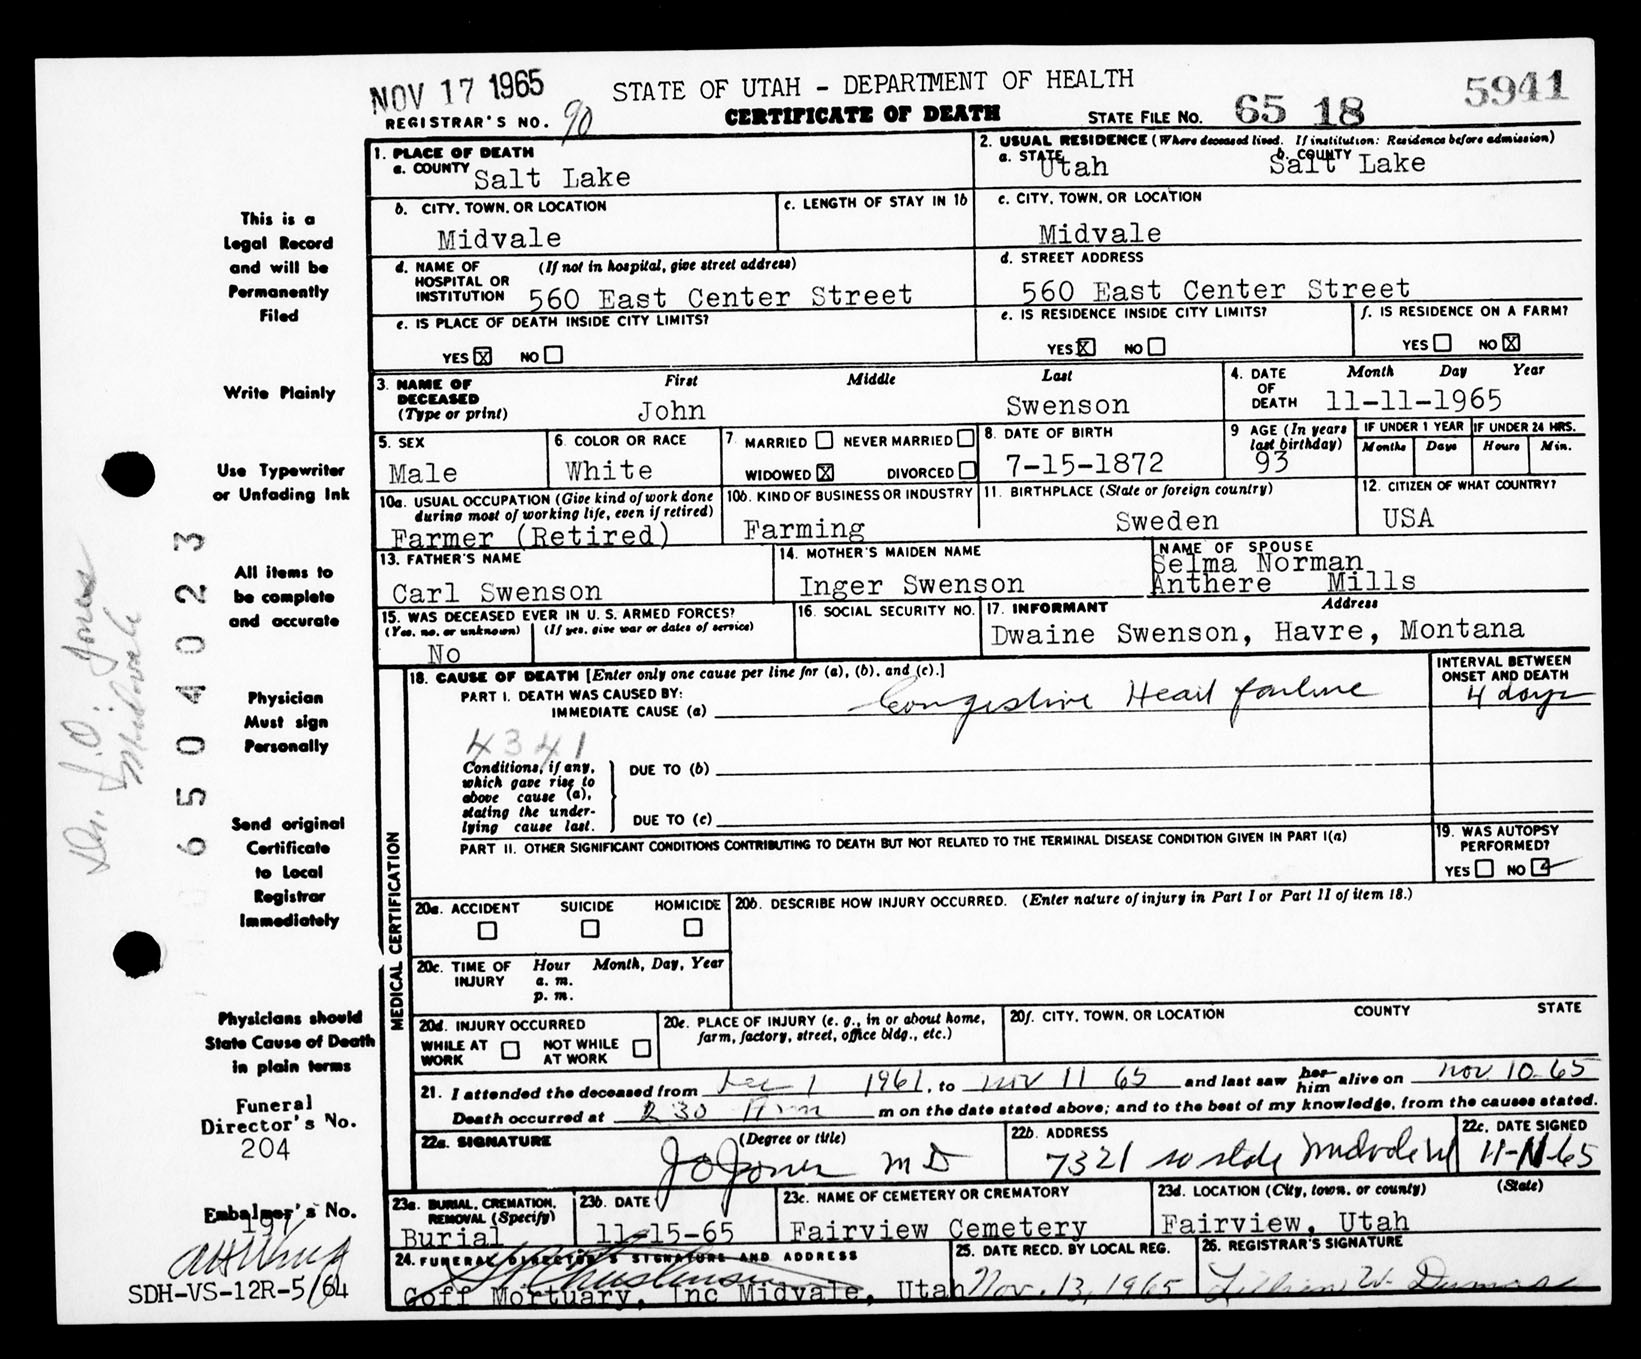 NOV 17 1965
STATE OF UTAH - DEPARTMENT OF HEALTH
5941
REGISTRAR'S NO. 90
CERTIFICATE OF DEATH
STATE FILE NO. 65 18
1. PLACE OF DEATH
a. COUNTY Salt Lake
2. USUAL RESIDENCE (Where deceased lived. If institution: Residence before admission)
a. STATE Utah b. COUNTY Salt Lake
b. CITY, TOWN, OR LOCATION
Midvale
c. LENGTH OF STAY IN 1b
c. CITY, TOWN, OR LOCATION
Midvale
d. NAME OF HOSPITAL OR INSTITUTION (If not in hospital, give street address)
560 East Center Street
d. STREET ADDRESS
560 East Center Street
e. IS PLACE OF DEATH INSIDE CITY LIMITS?
YES X NO
e. IS RESIDENCE INSIDE CITY LIMITS?
YES X NO
f. IS RESIDENCE ON A FARM?
YES NO X
3. NAME OF DECEASED (Type or print)
First Middle Last
John Swenson
4. DATE OF DEATH
Month Day Year
11-11-1965
5. SEX
Male
6. COLOR OR RACE
White
7. MARRIED NEVER MARRIED
WIDOWED X DIVORCED
8. DATE OF BIRTH
7-15-1872
9 AGE (In years last birthday)
93
IF UNDER 1 YEAR
Months Days
IF UNDER 24 HRS.
Hours Min.
10a. USUAL OCCUPATION (Give kind of work done during most of working life, even if retired)
Farmer (Retired)
10b. KIND OF BUSINESS OR INDUSTRY
Farming
11. BIRTHPLACE (State or foreign country)
Sweden
12. CITIZEN OF WHAT COUNTRY?
USA
13. FATHER'S NAME
Carl Swenson
14. MOTHER'S MAIDEN NAME
Inger Swenson
NAME OF SPOUSE
Selma Norman
Anthere Mills
15. WAS DECEASED EVER IN U. S. ARMED FORCES?
(Yes, no, or unknown) (If yes, give war or dates of service)
No
16. SOCIAL SECURITY NO.
17. INFORMANT Address
Dwaine Swenson, Havre, Montana
MEDICAL CERTIFICATION
18. CAUSE OF DEATH [Enter only one cause per line for (a), (b), and (c).]
PART I. DEATH WAS CAUSED BY:
IMMEDIATE CAUSE (a) Congestive Heart failure
INTERVAL BETWEEN ONSET AND DEATH
4 days
4341
Conditions, if any, which gave rise to above cause (a), stating the underlying cause last.
DUE TO (b)
DUE TO (c)
PART II. OTHER SIGNIFICANT CONDITIONS CONTRIBUTING TO DEATH BUT NOT RELATED TO THE TERMINAL DISEASE CONDITION GIVEN IN PART I(a)
19. WAS AUTOPSY PERFORMED?
YES NO
20a. ACCIDENT SUICIDE HOMICIDE
20b. DESCRIBE HOW INJURY OCCURRED. (Enter nature of injury in Part I or Part II of item 18.)
20c. TIME OF INJURY Hour Month, Day, Year
a. m.
p. m.
20d. INJURY OCCURRED
WHILE AT WORK NOT WHILE AT WORK
20e. PLACE OF INJURY (e. g., in or about home, farm, factory, street, office bldg., etc.)
20f. CITY, TOWN, OR LOCATION COUNTY STATE
21. I attended the deceased from Dec 1 1961, to Nov 11 65 and last saw her him alive on Nov. 10-65
Death occurred at 2 30 A m m on the date stated above; and to the best of my knowledge, from the causes stated.
22a. SIGNATURE (Degree or title)
J O Jones M D
22b. ADDRESS
7321 so state Midvale
22c. DATE SIGNED
11-11-65
23a. BURIAL, CREMATION, REMOVAL (Specify)
Burial
23b. DATE
11-15-65
23c. NAME OF CEMETERY OR CREMATORY
Fairview Cemetery
23d. LOCATION (City, town, or county) (State)
Fairview, Utah
24. FUNERAL DIRECTOR'S SIGNATURE AND ADDRESS
Goff Mortuary, Inc Midvale, Utah
25. DATE RECD. BY LOCAL REG.
Nov. 13, 1965
26. REGISTRAR'S SIGNATURE
Lillian W.
This is a
Legal Record
and will be
Permanently
Filed
Write Plainly
Use Typewriter
or Unfading Ink
All items to
be complete
and accurate
Physician
Must sign
Personally
Send original
Certificate
to Local
Registrar
Immediately
Physicians should
State Cause of Death
in plain terms
Funeral
Director's No.
204
Embalmer's No.
SDH-VS-12R-5/64
Dr. J.O. Jones
Midvale
6504023